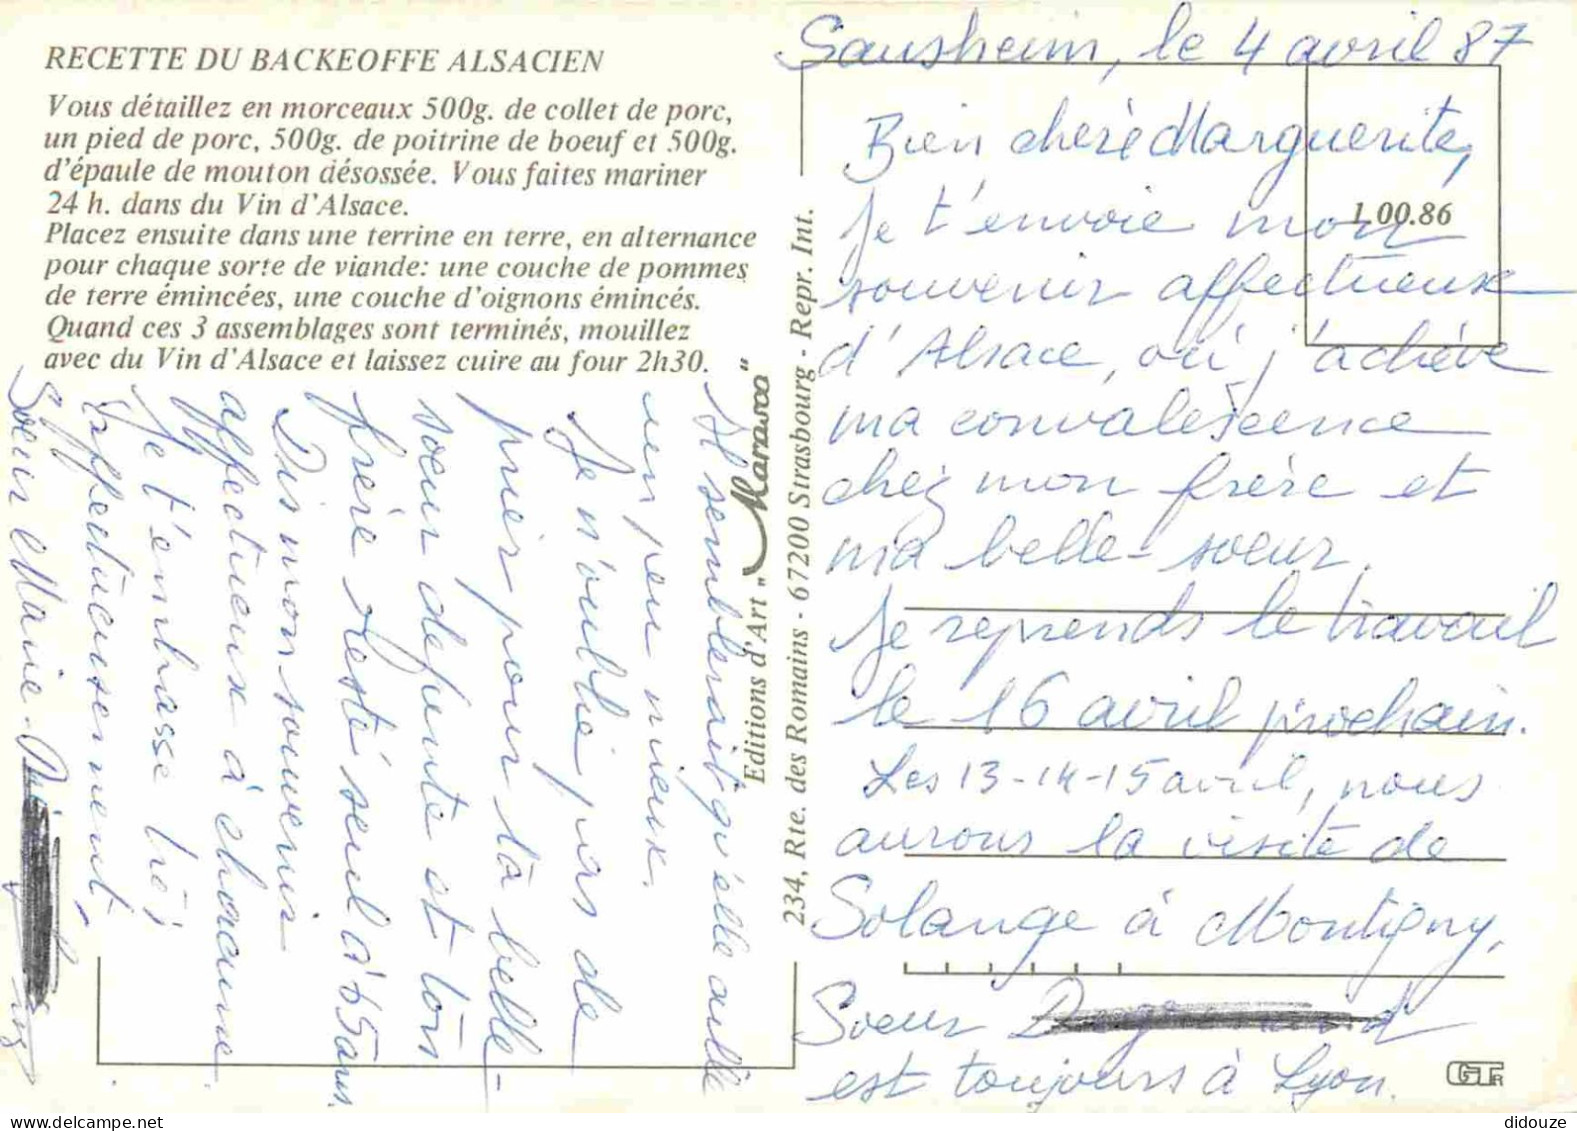 RECETTE DU BACKEOFFE ALSACIEN
Vous détaillez en morceaux 500g. de collet de porc,
un pied de porc, 500g. de poitrine de boeuf et 500g.
d'épaule de mouton désossée. Vous faites mariner
24 h. dans du Vin d'Alsace.
Placez ensuite dans une terrine en terre, en alternance
pour chaque sorte de viande: une couche de pommes
de terre émincées, une couche d'oignons émincés.
Quand ces 3 assemblages sont terminés, mouillez
avec du Vin d'Alsace et laissez cuire au four 2h30.
Editions d'Art „Marasco"
234, Rte. des Romains - 67200 Strasbourg - Repr. Int.
1.00.86
Sausheim, le 4 avril 87
Bien chère Marguerite,
Je t'envoie mon
souvenir affectueux
d'Alsace, où j'achève
ma convalescence
chez mon frère et
ma belle-soeur.
Je reprends le travail
le 16 avril prochain.
Les 13-14-15 avril, nous
aurons la visite de
Solange à Montigny.
Soeur
est toujours à Lyon.
Il semblerait qu'elle aille
un peu mieux.
Je n'oublie pas de
prier pour ta belle-
soeur défunte et ton
frère resté seul à 65 ans.
Dis mon souvenir
affectueux à chacune.
Je t'embrasse très
affectueusement,
Soeur Marie-
GTR
didouze